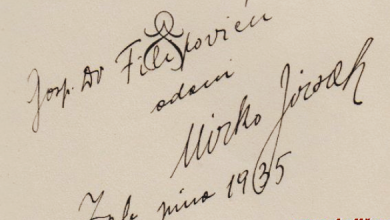 Gosp. Dr Filipoviću
odani
Mirko Jirsak
1935